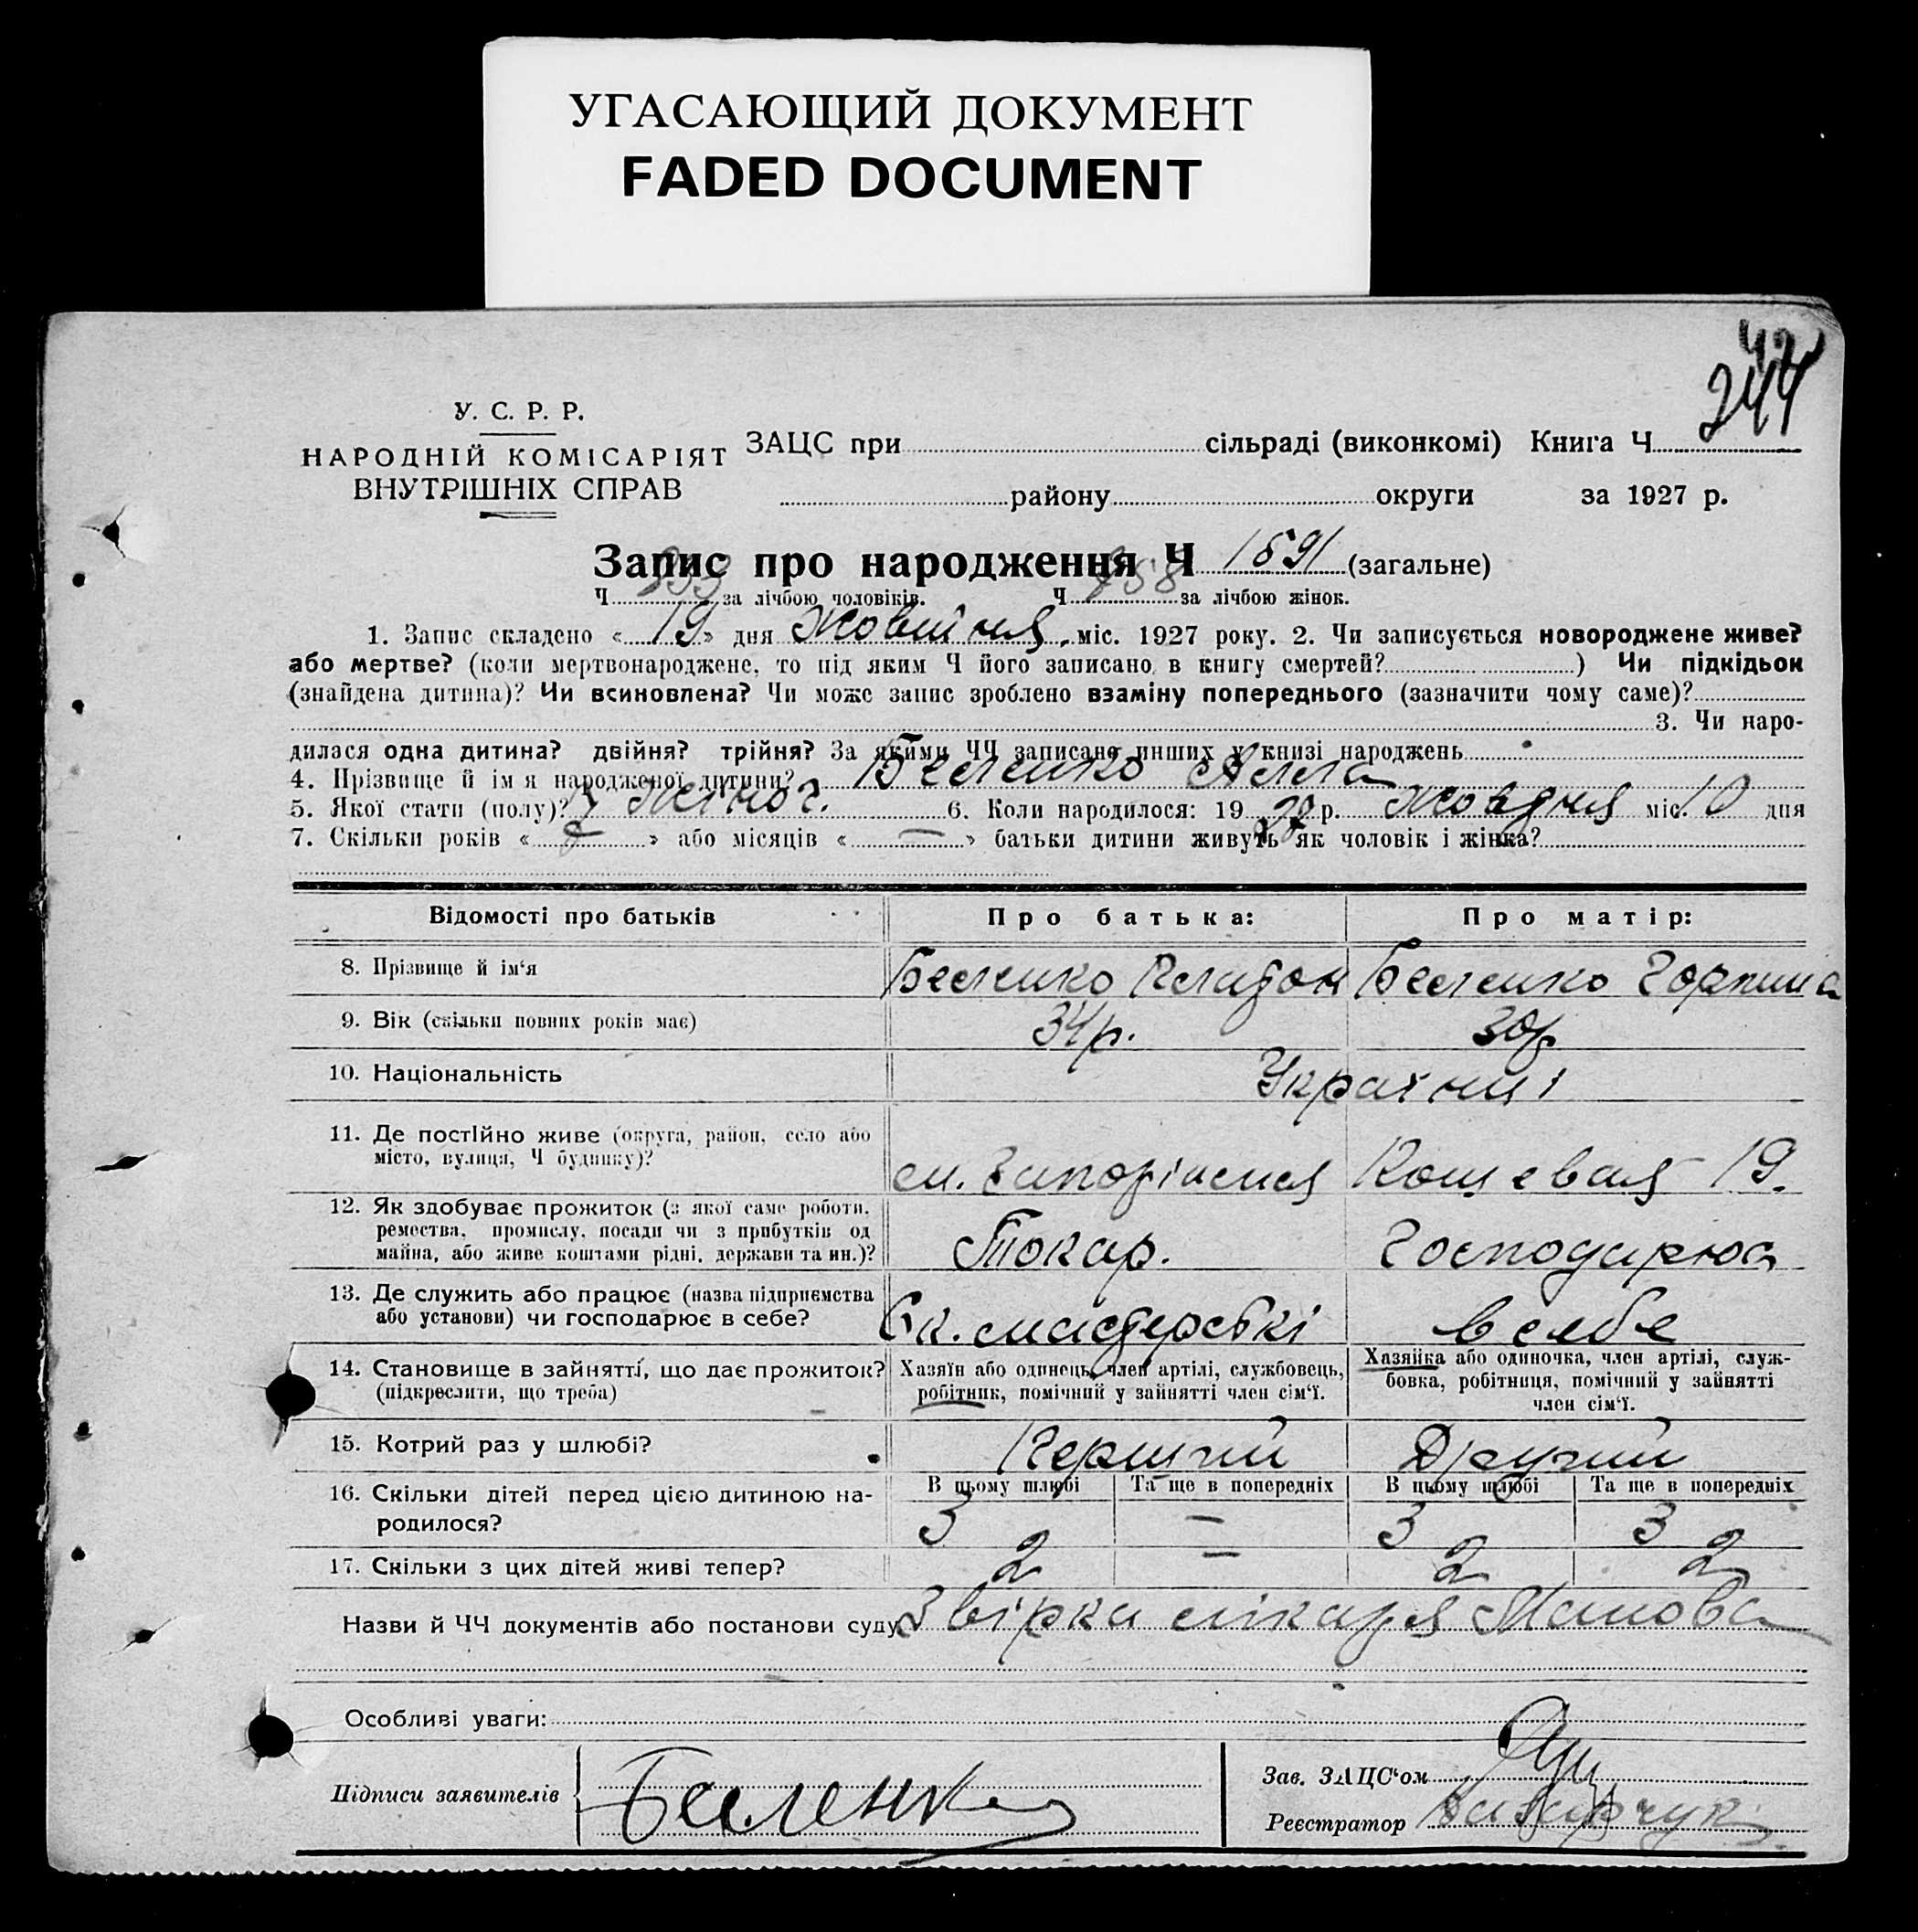 УГАСАЮЩИЙ ДОКУМЕНТ
FADED DOCUMENT
244
У. С. Р. Р.
НАРОДНІЙ КОМІСАРІЯТ
ВНУТРІШНІХ СПРАВ
ЗАЦС при сільраді (виконкомі) Книга Ч
району округи за 1927 р.
Запис про народження Ч 1591 (загальне)
Ч за лічбою чоловіків. Ч 758 за лічбою жінок.
1. Запис складено « 19 » дня Жовтня міс. 1927 року. 2. Чи записується новороджене живе?
або мертве? (коли мертвонароджене, то під яким Ч його записано в книгу смертей? ) Чи підкідьок
(знайдена дитина)? Чи всиновлена? Чи може запис зроблено взаміну попереднього (зазначити чому саме)?
3. Чи наро-
дилася одна дитина? двійня? трійня? За якими ЧЧ записано инших у книзі народжень
4. Прізвище й ім'я народженої дитини? Беленко Алла
5. Якої стати (полу)? Жіноч. 6. Коли народилося: 19 27 р. Жовдня міс. 10 дня
7. Скільки років « » або місяців « — » батьки дитини живуть як чоловік і жінка?
Відомості про батьків Про батька: Про матір:
8. Прізвище й ім'я Беленко Платон Беленко Горпина
9. Вік (скільки повних років має) 34р. 30р
10. Національність Українці
11. Де постійно живе (округа, район, село або
місто, вулиця, Ч будинку)? м. Запоріжжя Кошевая 19.
12. Як здобуває прожиток (з якої саме роботи,
ремества, промислу, посади чи з прибутків од
майна, або живе коштами рідні, держави та ин.)? Токар. Господарює
13. Де служить або працює (назва підприємства
або установи) чи господарює в себе? Єк. мастерські в себе
14. Становище в зайнятті, що дає прожиток?
(підкреслити, що треба)
Хазяїн або одинець, член артілі, службовець,
робітник, помічний у зайнятті член сім'ї.
Хазяйка або одиночка, член артілі, служ-
бовка, робітниця, помічний у зайнятті
член сім'ї.
15. Котрий раз у шлюбі? Перший Другий
В цьому шлюбі Та ще в попередніх В цьому шлюбі Та ще в попередніх
16. Скільки дітей перед цією дитиною на-
родилося? 3 — 3 3
17. Скільки з цих дітей живі тепер? 2 — 2 2
Назви й ЧЧ документів або постанови суду Звірка лікаря
Особливі уваги:
Підписи заявителів Беленко
Зав. ЗАЦС'ом
Реєстратор